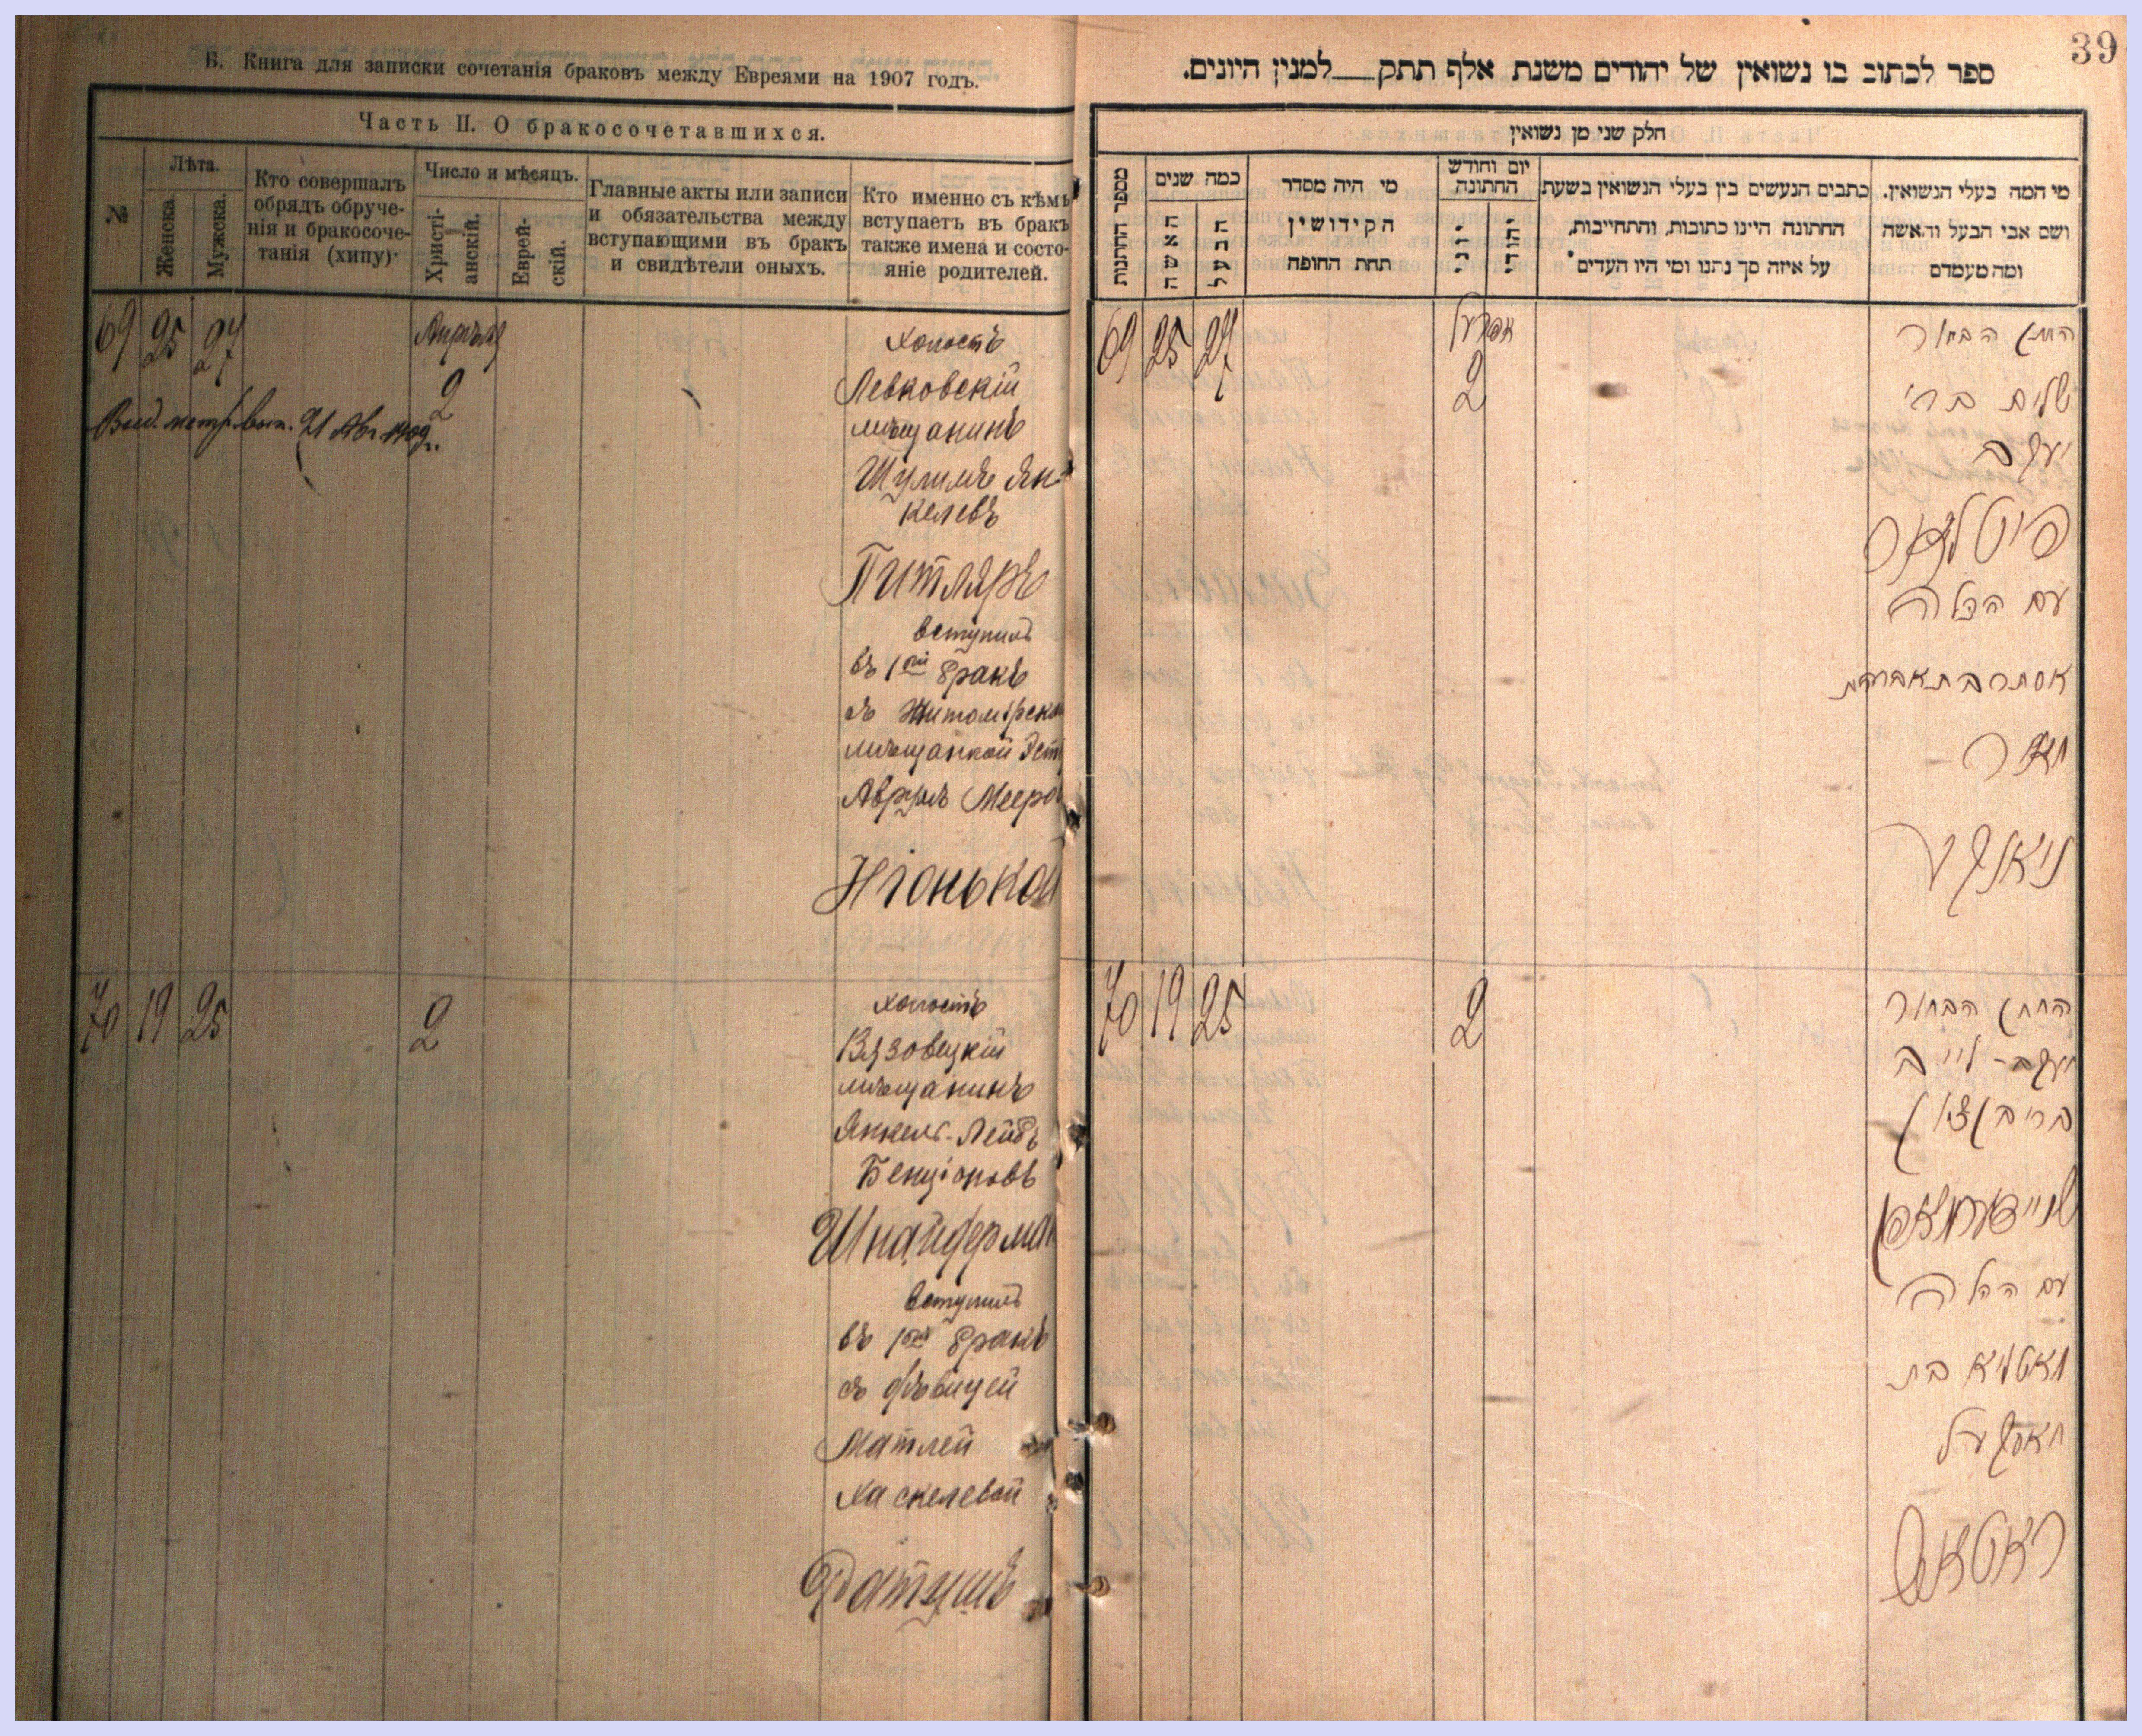 Б. Книга для записки сочетанія браковъ между Евреями на 1907 годъ.
Часть II. О бракосочетавшихся.
№
Лѣта.
Женска.
Мужска.
Кто совершалъ
обрядъ обруче-
нія и бракосоче-
танія (хипу)
Число и мѣсяцъ.
Христі-
анскій.
Еврей-
скій.
Главные акты или записи
и обязательства между
вступающими въ бракъ
и свидѣтели оныхъ.
Кто именно съ кѣмъ
вступаетъ въ бракъ
также имена и состо-
яніе родителей.
69 25 27
Апрѣля
2
Выд. метр. вып. 21 Авг. 1909 г.
холостъ
Левковскій
мѣщанинъ
Шулимъ Ян-
келевъ
Питляръ
вступилъ
въ 1ой бракъ
съ Житомірско
мѣщанкой Эст
Аврумъ Мееро
Нюнькой
70 19 25
2
холостъ
Вязовецкій
мѣщанинъ
Янкель-Лейбъ
Бенціоновъ
Шнайдерман
вступилъ
въ 1ой бракъ
съ дѣвицей
Матлей
Хаскелевой
Ратушъ
39
ספר לכתוב בו נשואין של יהודים משנת אלף תתק למנין היונים.
חלק שני מן נשואין
מספר החתנות
כמה שנים
האשה
הבעל
מי היה מסדר
הקידושין
תחת החופה
יום וחודש
החתונה
יוני
יהודי
כתבים הנעשים בין בעלי הנשואין בשעת
החתונה היינו כתובות, והתחייבות,
על איזה סך נתנו ומי היו העדים
מי המה בעלי הנשואין.
ושם אבי הבעל והאשה
ומה מעמדם
69 25 27
אפריל
2
החתן הבחור
שלום ברי
יעקב
פיטלאר
עם הכלה
אסתר בת אברהם
מאיר
ניאנקע
70 19 25
2
החתן הבחור
יעקב-לייב
ברי בן ציון
שניידערמאן
עם הכלה
מאטליא בת
חאסקעל
ראטאש